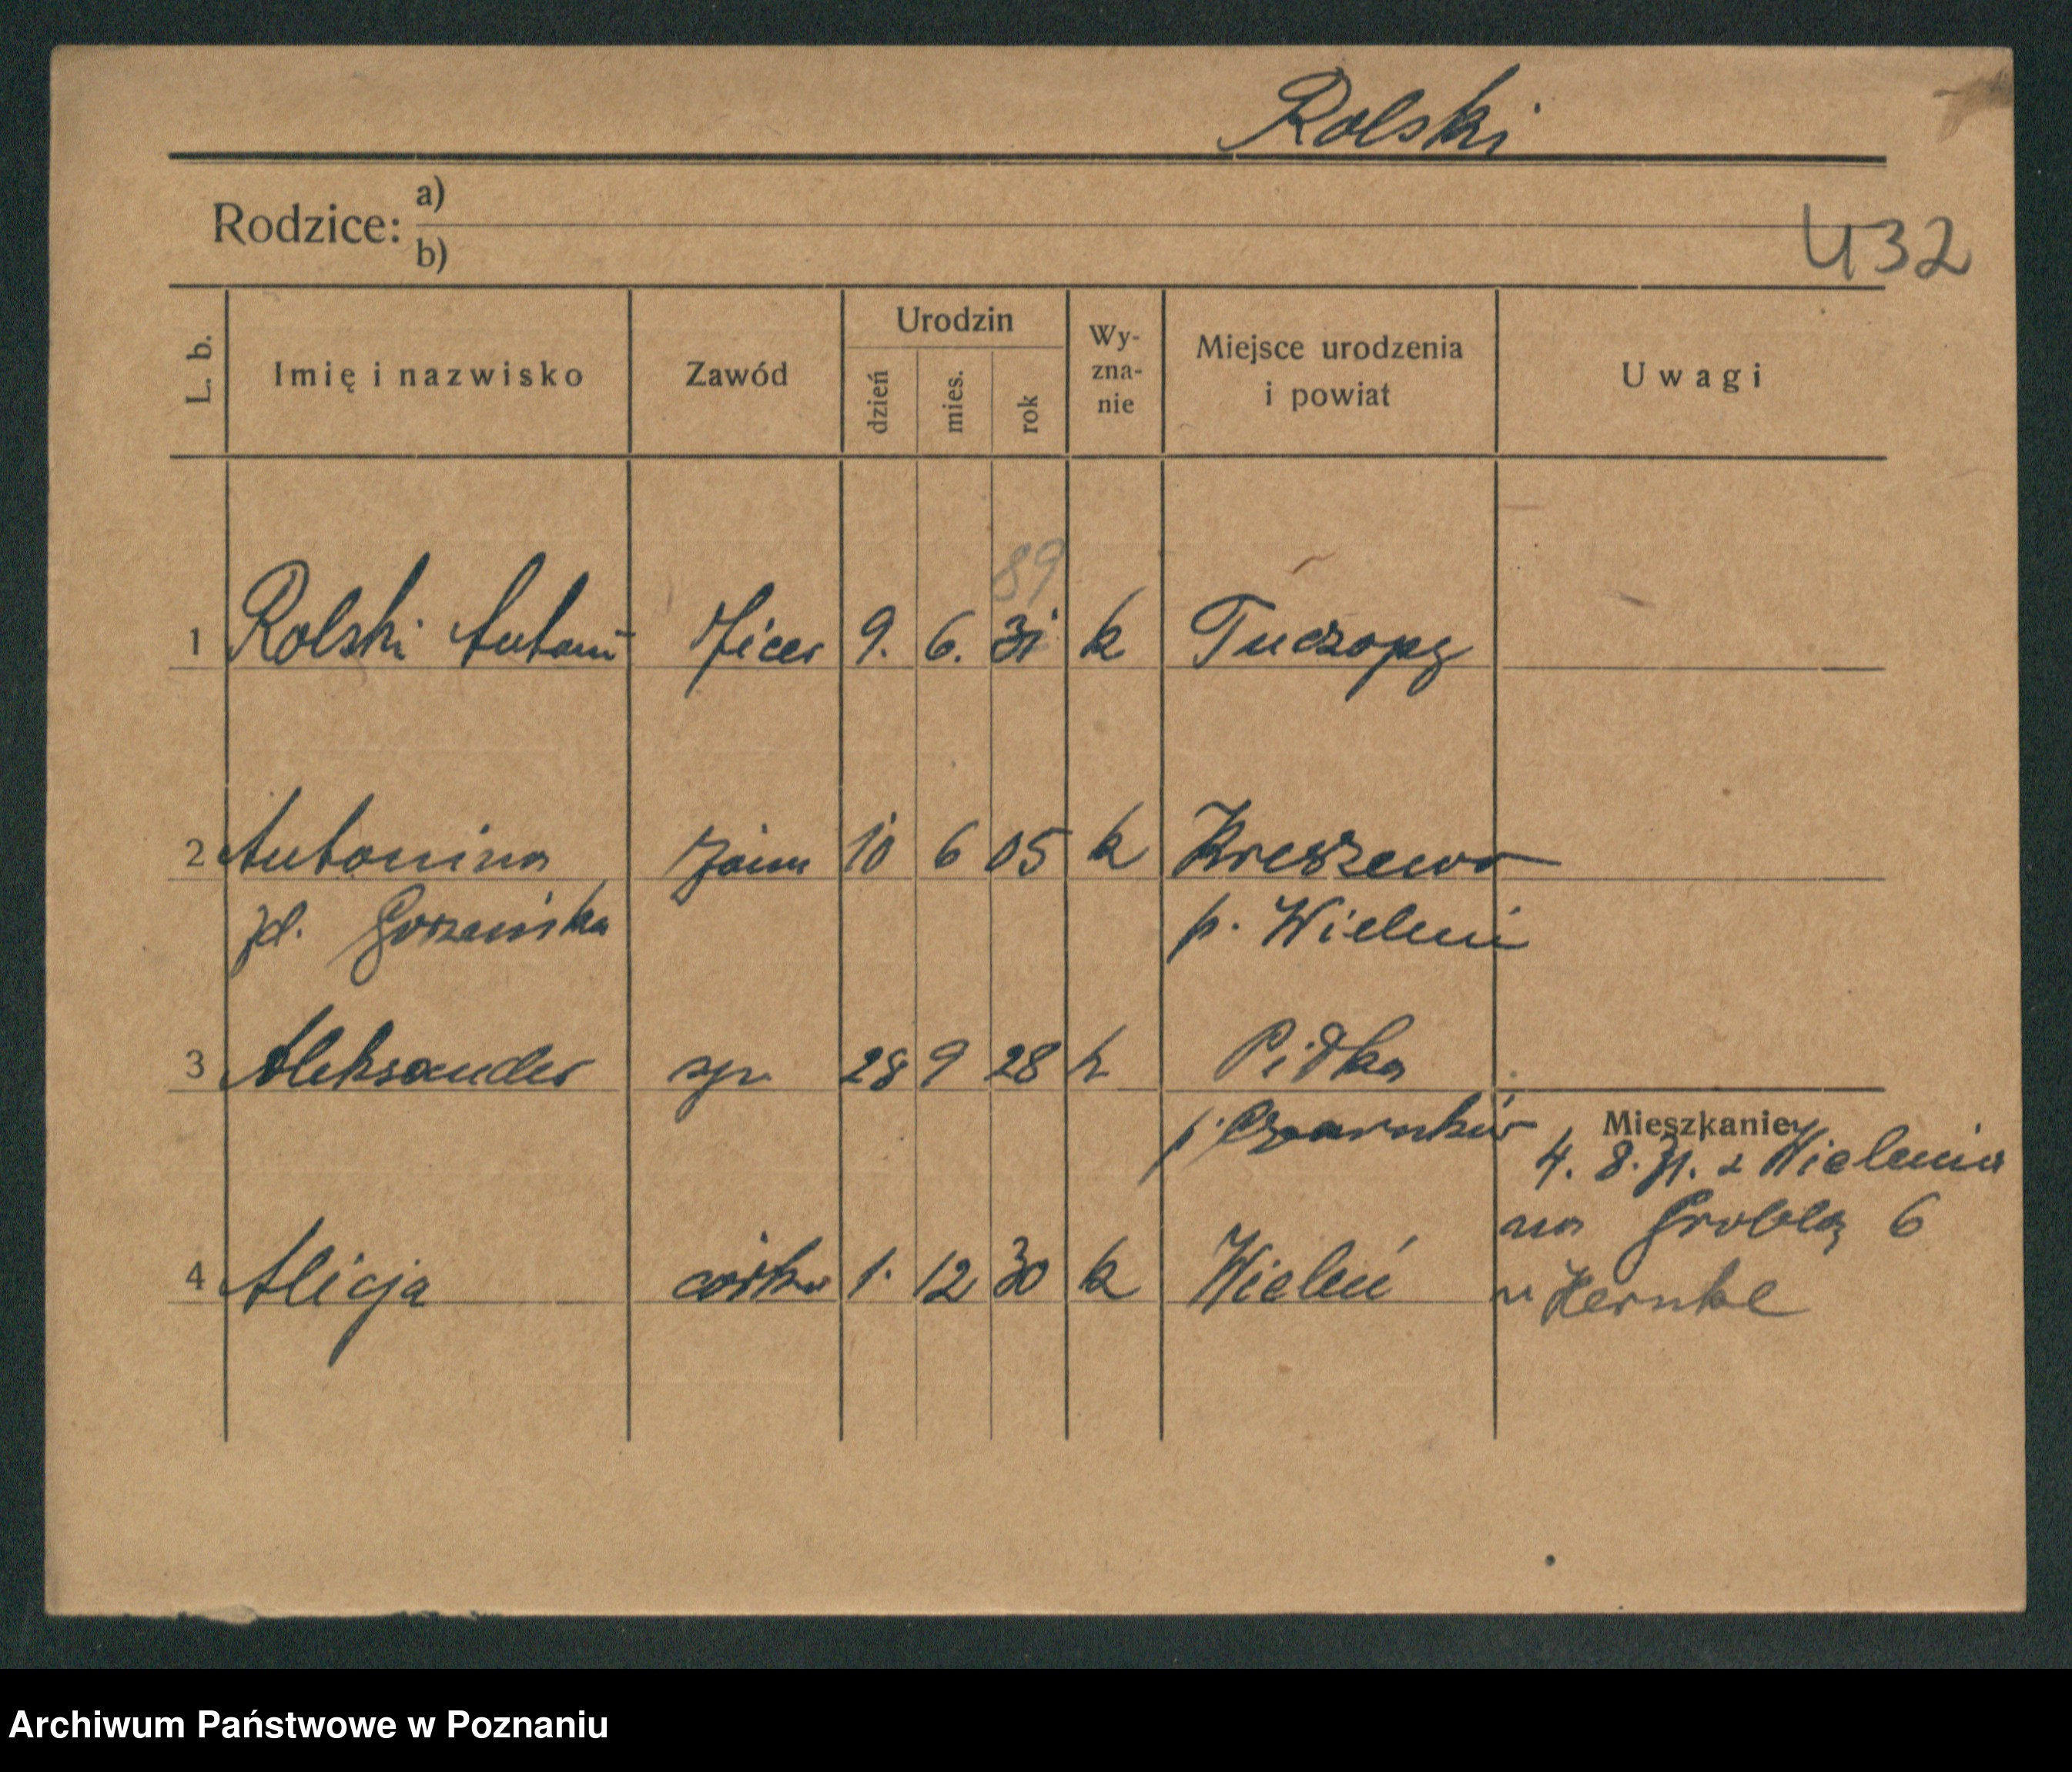 Rolski
Rodzice: a)
b)
432
L. b. Imię i nazwisko Zawód Urodzin dzień mies. rok Wy-zna-nie Miejsce urodzenia i powiat Uwagi
89
1 Rolski Antoni 9. 6. 31 k Tuczępy
2 Antonina żona 10 6 05 k
zd. p. Wieleń
3 Aleksander syn 28 9 28 k
p. Czarnków
Mieszkanie
4. 8. 31. z Wielenia
na Groblę 6
4 Alicja córka 1. 12 30 k Wieleń
u Hernke
Archiwum Państwowe w Poznaniu